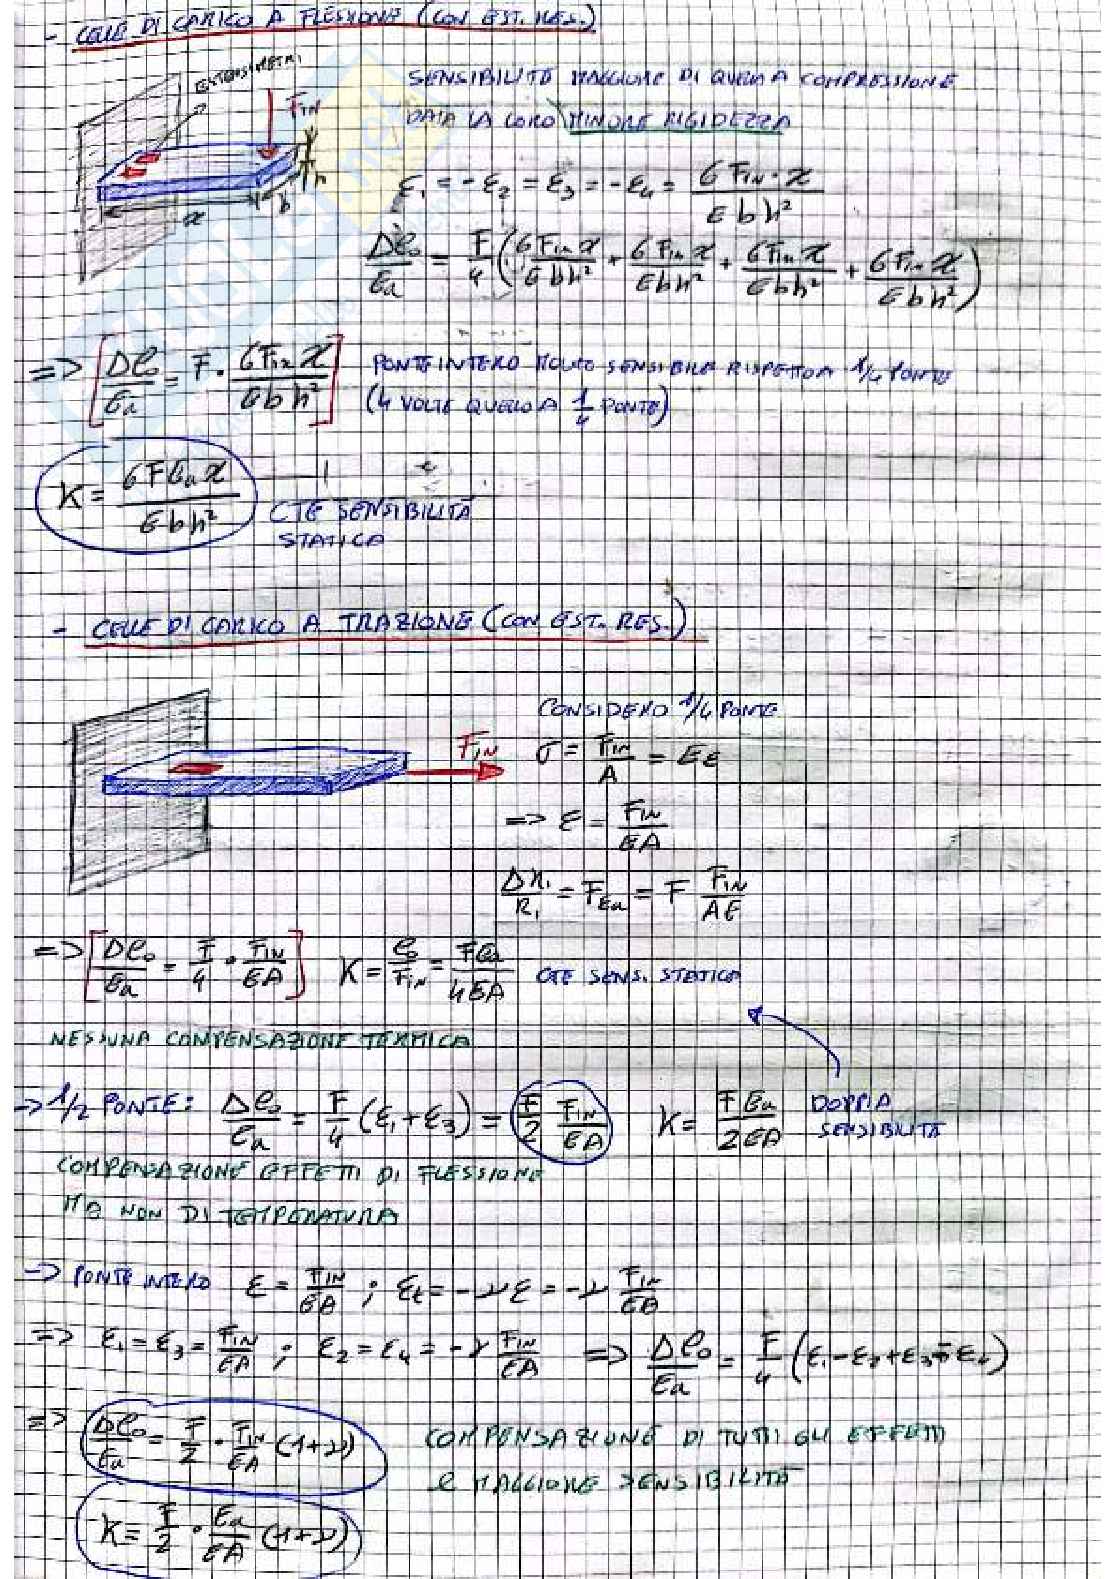 - CELLE DI CARICO A FLESSIONE (CON EST. RES.)
ESTENSIMETRI
F_IN
x b h
SENSIBILITÀ MAGGIORE DI QUELLA A COMPRESSIONE
DATA LA LORO MINORE RIGIDEZZA
ε₁ = -ε₂ = ε₃ = -ε₄ = 6 F_IN · x / E b h²
Δe₀/E_a = F/4 (6 F_IN x / E b h² + 6 F_IN x / E b h² + 6 F_IN x / E b h² + 6 F_IN x / E b h²)
=> [Δe₀/E_a = F · 6 F_IN x / E b h²] PONTE INTERO MOLTO SENSIBILE RISPETTO A 1/4 PONTE
(4 VOLTE QUELLO A 1/4 PONTE)
K = 6 F E_a x / E b h²
CTE SENSIBILITÀ
STATICA
- CELLE DI CARICO A TRAZIONE (CON EST. RES.)
CONSIDERO 1/4 PONTE
F_IN
σ = F_IN / A = E ε
=> ε = F_IN / EA
ΔR₁/R₁ = F ε_a = F F_IN / AE
=> [Δe₀/E_a = F/4 · F_IN / EA] K = e₀/F_IN = F E_a / 4EA CTE SENS. STATICA
NESSUNA COMPENSAZIONE TERMICA
-> 1/2 PONTE: Δe₀/E_a = F/4 (ε₁ + ε₃) = F/2 F_IN / EA K = F E_a / 2EA DOPPIA
SENSIBILITÀ
COMPENSAZIONE EFFETTI DI FLESSIONE
MA NON DI TEMPERATURA
-> PONTE INTERO ε = F_IN / EA ; ε_t = -ν ε = -ν F_IN / EA
=> ε₁ = ε₃ = F_IN / EA ; ε₂ = ε₄ = -ν F_IN / EA => Δe₀/E_a = F/4 (ε₁ - ε₂ + ε₃ - ε₄)
=> Δe₀/E_a = F/2 · F_IN / EA (1+ν) COMPENSAZIONE DI TUTTI GLI EFFETTI
E MAGGIORE SENSIBILITÀ
K = F/2 · E_a / EA (1+ν)